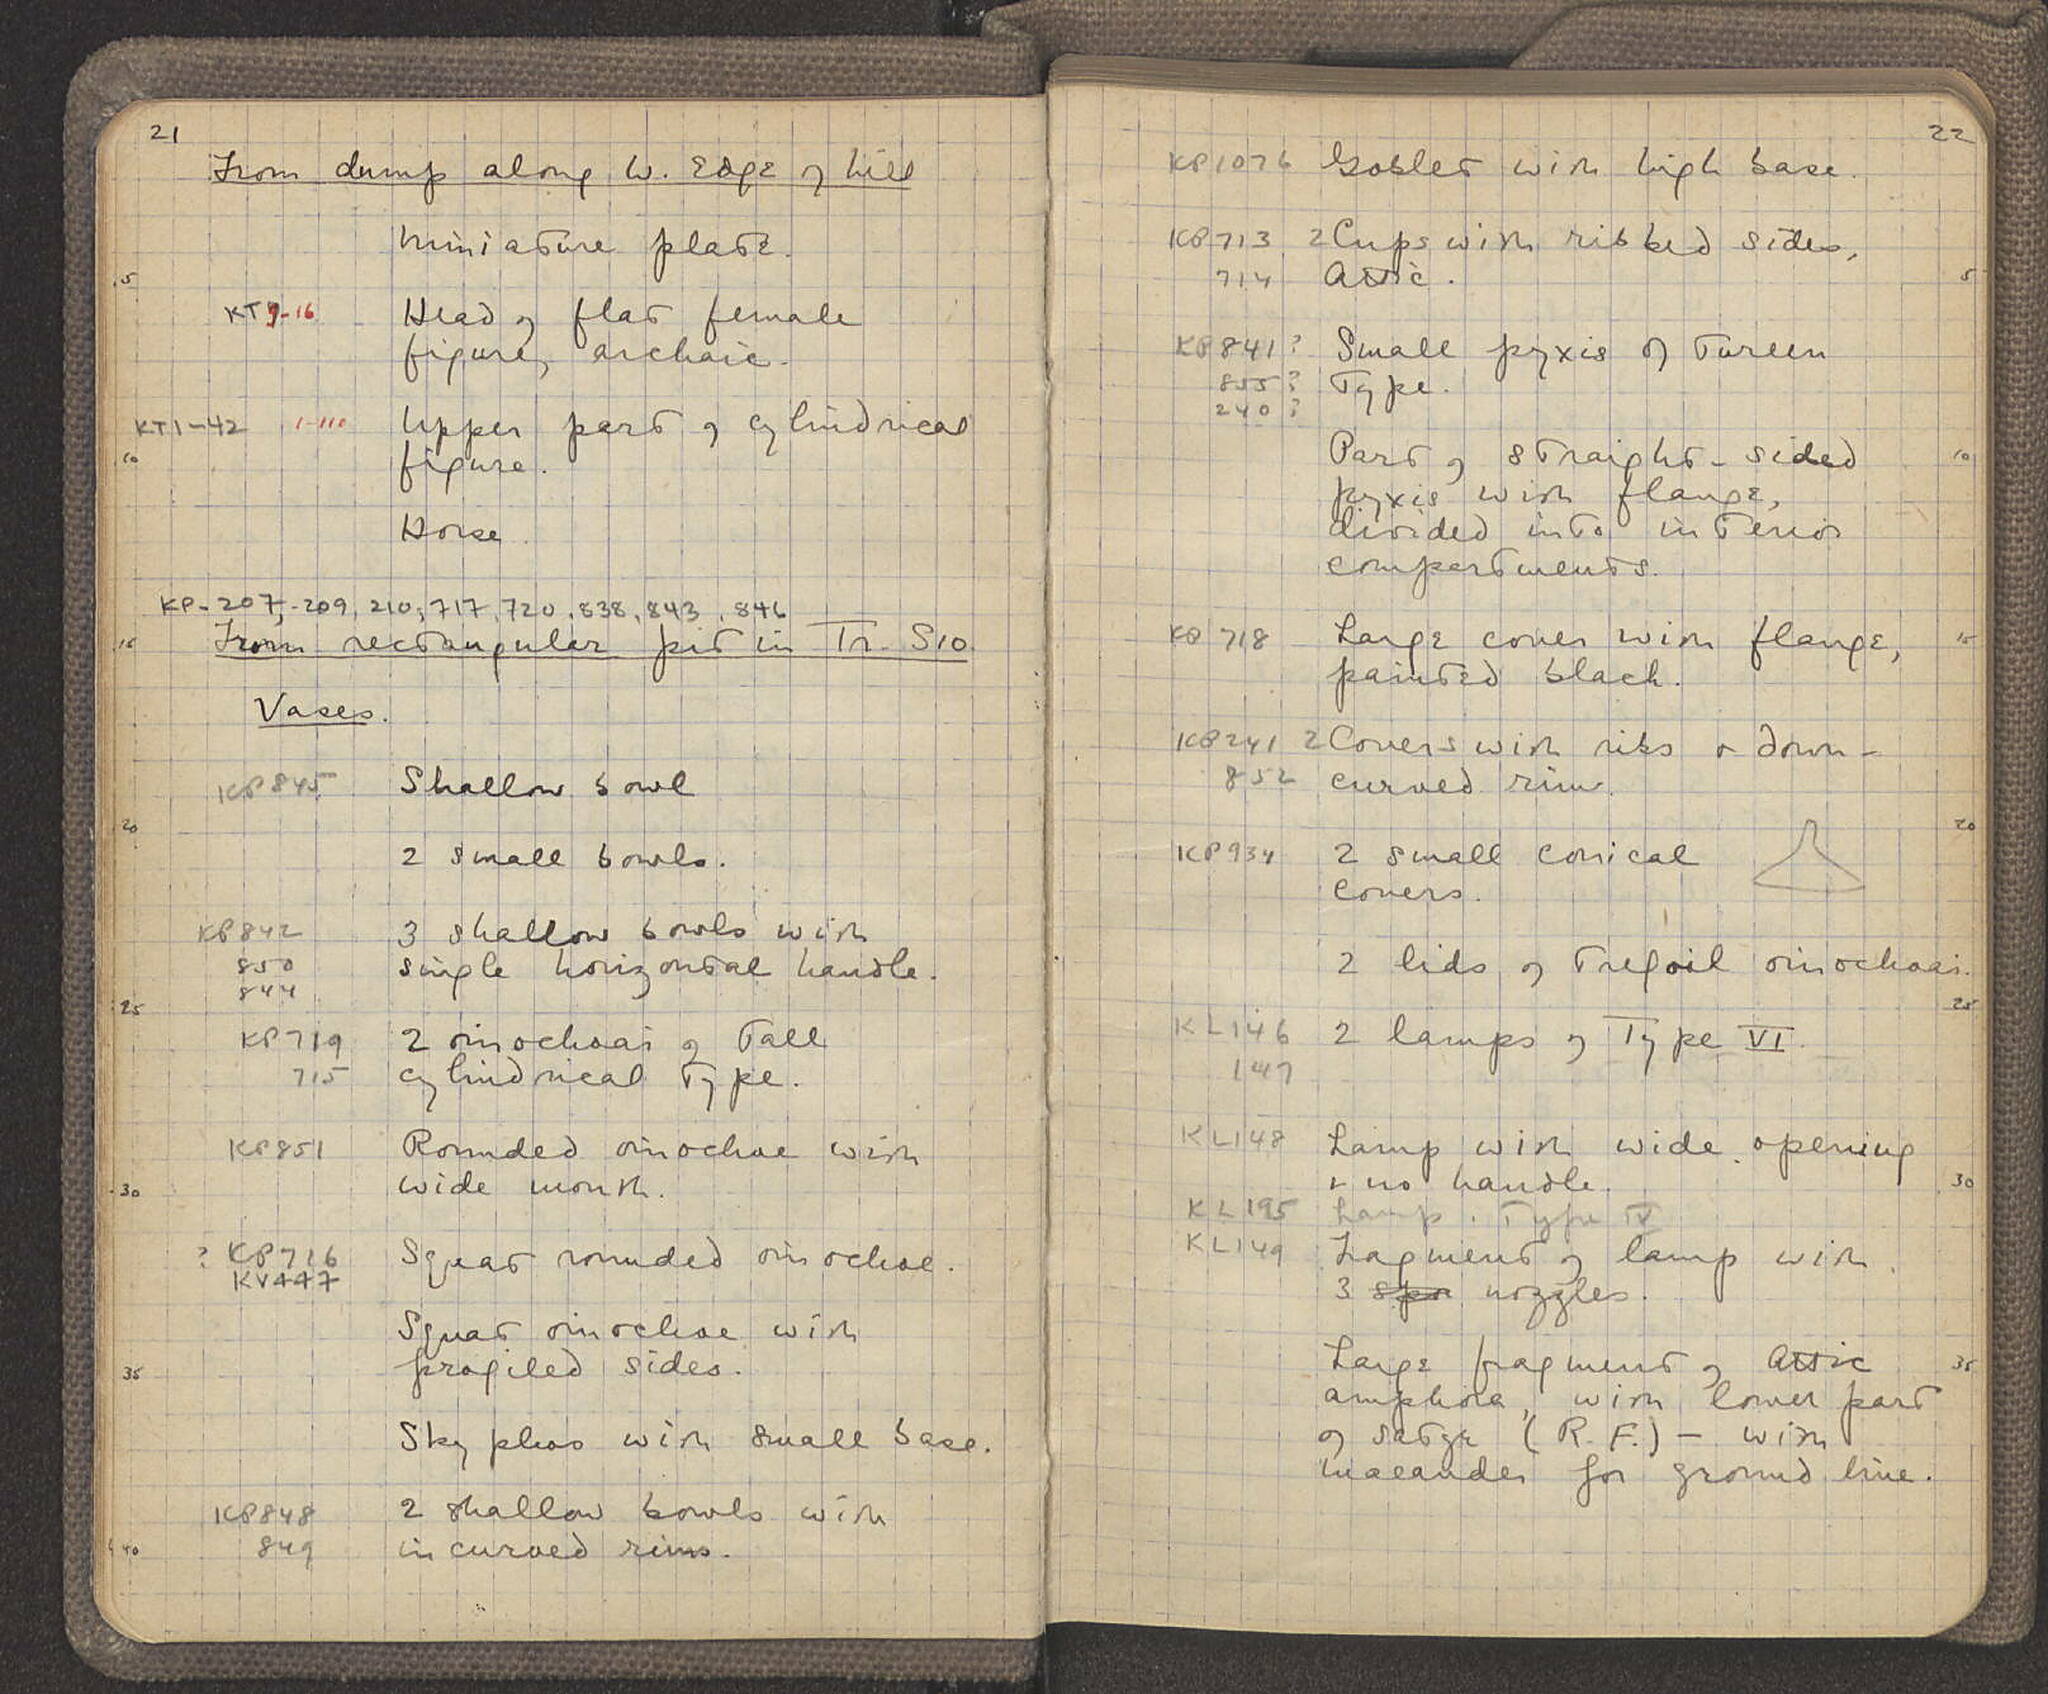 21
From dump along W. Edge of hill
Miniature plate.
5
KT9-16 Head of flat female
figure, archaic.
KT1-42 1-110 Upper part of cylindrical
10
figure.
Horse
KP-207, -209, 210, 717, 720, 838, 843, 846
15 From rectangular pit in Tr. S10.
Vases.
KP845 Shallow bowl
20
2 small bowls.
KP842 3 shallow bowls with
850 single horizontal handle.
844
25
KP719 2 oinochoai of Tall
715 cylindrical Type.
KP851 Rounded oinochoe with
30 wide mouth.
? KP716 Squat rounded oinochoe.
KV447
Squat oinochoe with
35 profiled sides.
Skyphos with small base.
KP848 2 shallow bowls with
40 849 incurved rims.
22
KP1076 Goblet with high base.
KP713 2 Cups with ribbed sides,
714 Attic. 5
KP841? Small pyxis of Tureen
855? Type.
240?
Part of straight-sided 10
pyxis with flange,
divided into interior
compartments.
KP718 Large cover with flange, 15
painted black.
KP241 2 Covers with ribs & down-
852 curved rim.
20
KP934 2 small conical
covers.
2 lids of Trefoil oinochoai.
25
KL146 2 lamps of Type VI.
147
KL148 Lamp with wide opening
& no handle. 30
KL195 Lamp. Type IV
KL149 Fragment of lamp with
3 spo nozzles.
Large fragment of Attic 35
amphora, with lower part
of satyr (R.F.) - with
maeander for ground line.